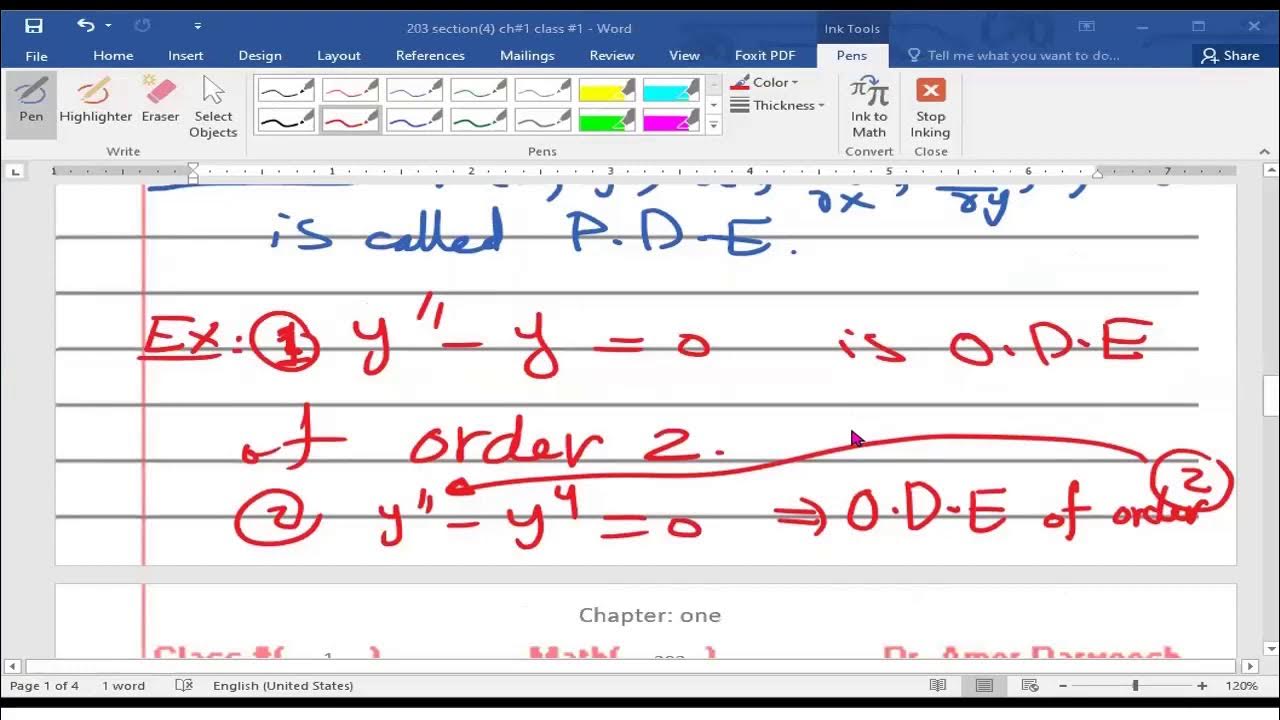 203 section(4) ch#1 class #1 - Word
Ink Tools
File Home Insert Design Layout References Mailings Review View Foxit PDF Pens Tell me what you want to do... Share
Pen Highlighter Eraser Select Objects
Color
Thickness
Ink to Math
Stop Inking
Write Pens Convert Close
1 1 2 3 4 5 6 7
∂x , ∂y ,
is called P.D.E.
Ex: ① y'' - y = 0 is O.D.E
of order 2.
② y'' - y⁴ = 0 ⇒ O.D.E of order ②
Chapter: one
Class #( 1 ) Math( 203 ) Dr. Amer Darweesh
Page 1 of 4 1 word English (United States) 120%